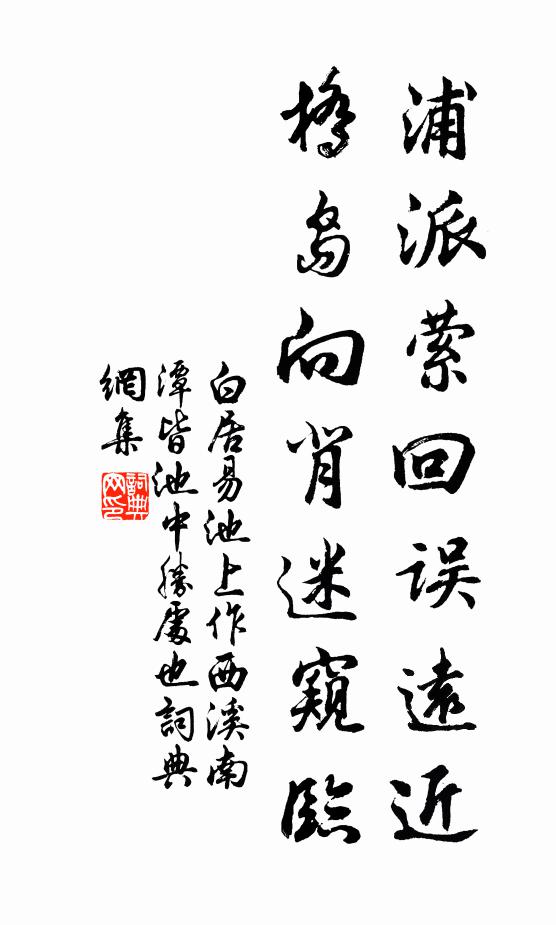 浦派萦回误遠近
橋島向背迷窺臨
白居易池上作西溪南
潭皆池中勝處也詞典
網集
詞典
网印